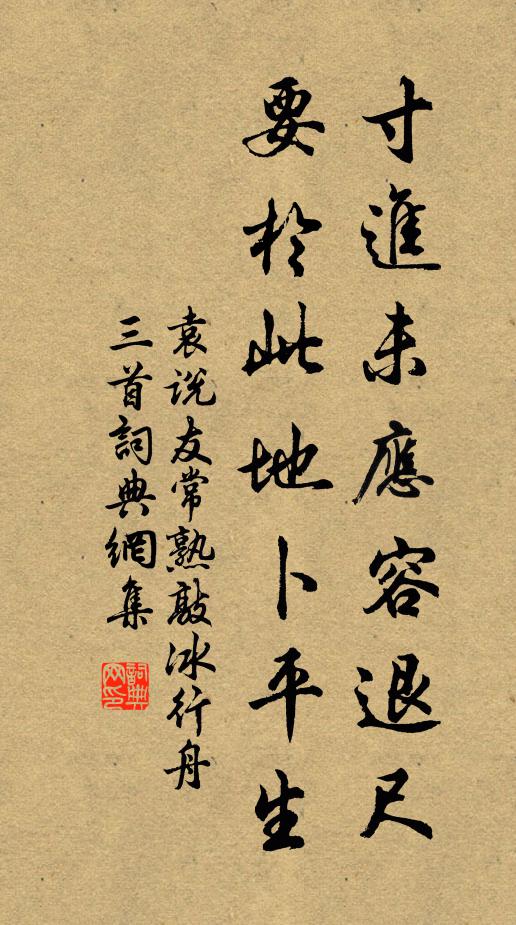 寸進未應容退尺
要於此地卜平生
袁說友常熟敲冰行舟
三首詞典網集
詞典網印